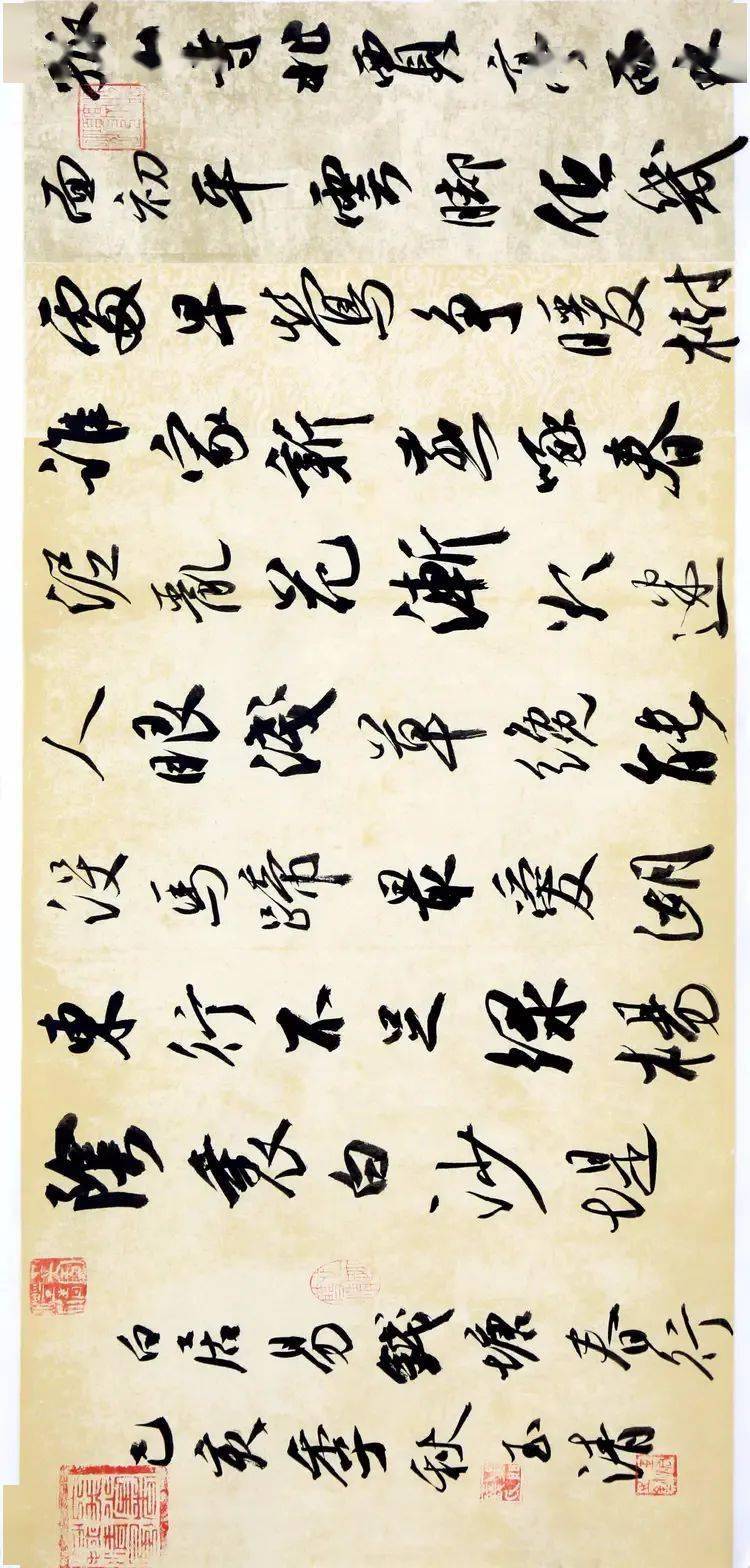 孤山寺北賈亭西水
面初平雲腳低幾
處早鶯爭暖樹
誰家新燕啄春
泥亂花漸欲迷
人眼淺草纔能
沒馬蹄最愛湖
東行不足綠楊
陰裏白沙堤
白居易錢塘春行
己亥季秋玉清